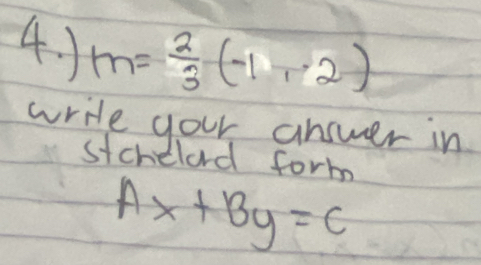 4.) m= 2/3 (-1, -2)
write your answer in
stcndard form
Ax + By = C